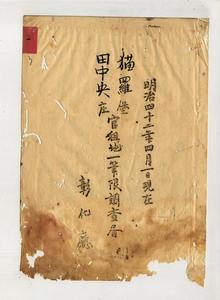 明治四十二年四月一日現在
猫羅堡
田中央庄
官租地一筆限調査書
彰化廳